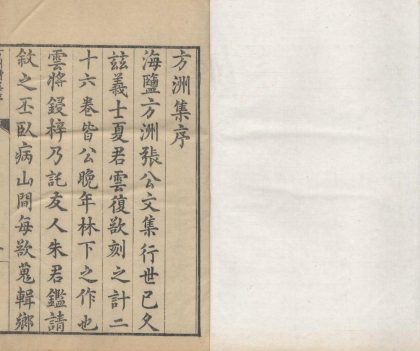 方洲集序
海鹽方洲張公文集行世已久
玆義士夏君雲復欲刻之計二
十六卷皆公晚年林下之作也
雲將鋟梓乃託友人朱君鑑請
敘之丕臥病山間每欲蒐輯鄉